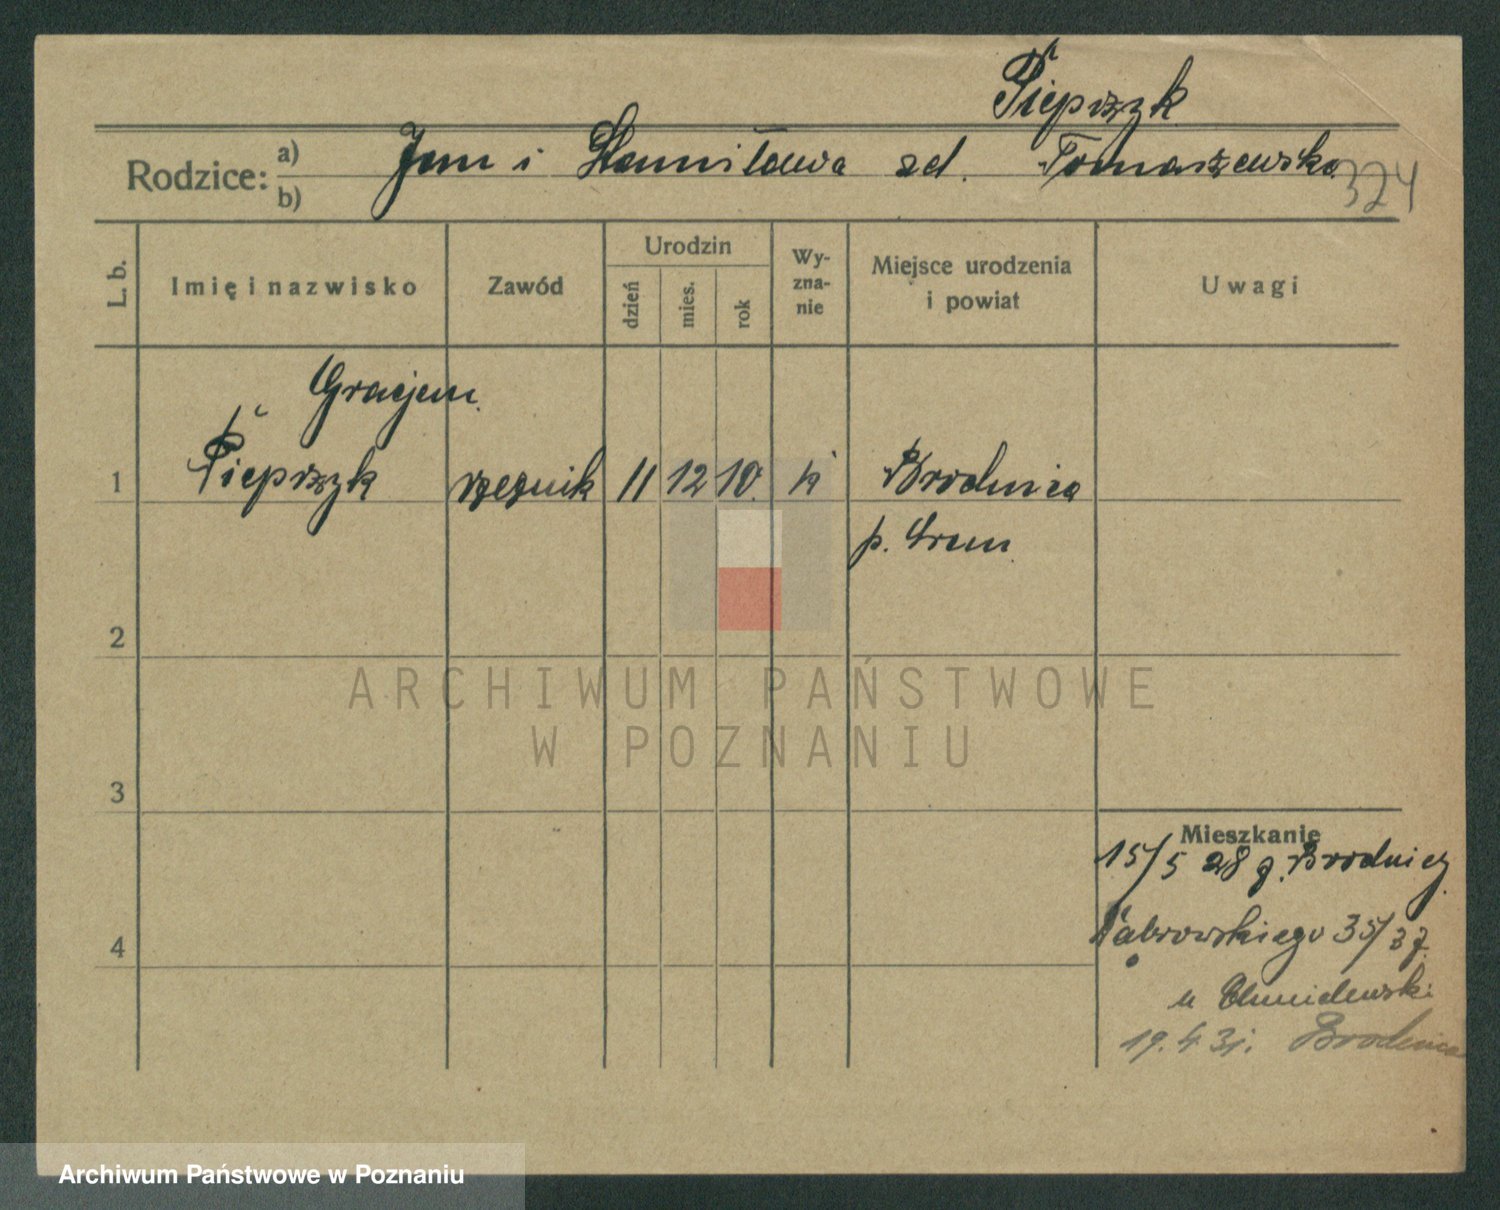 Pieprzyk
Rodzice: a) b) Jan i Stanisława zd. Tomaszewska 324
L. b. Imię i nazwisko Zawód Urodzin dzień mies. rok Wyznanie Miejsce urodzenia i powiat Uwagi
Gracjan
1 Pieprzyk rzeźnik 11 12 10. k Brodnica
p. Śrem
2
3
Mieszkanie
15/5 28 z Brodnicy
4 Dąbrowskiego 35/37
u Chmielewski
19. 4 31. Brodnica
ARCHIWUM PAŃSTWOWE
W POZNANIU
Archiwum Państwowe w Poznaniu